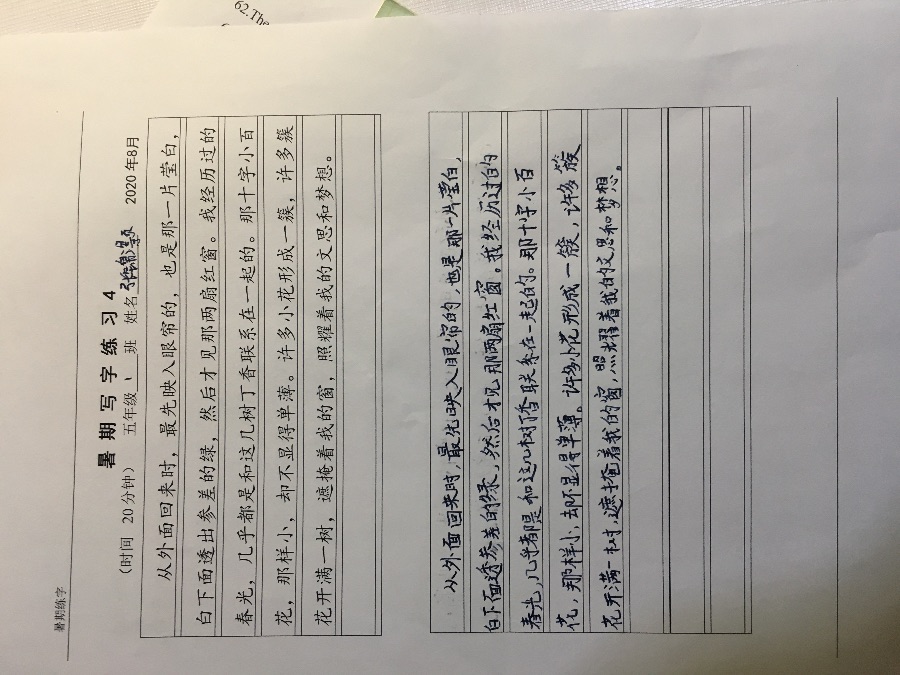 62.The
暑期练字
暑 期 写 字 练 习 4
（时间 20分钟） 五年级 1 班 姓名 2020年8月
从外面回来时，最先映入眼帘的，也是那一片莹白，
白下面透出参差的绿，然后才见那两扇红窗。我经历过的
春光，几乎都是和这几树丁香联系在一起的。那十字小百
花，那样小，却不显得单薄。许多小花形成一簇，许多簇
花开满一树，遮掩着我的窗，照耀着我的文思和梦想。
从外面回来时，最先映入眼帘的，也是那一片莹白，
白下面透参差的绿，然后才见那两扇红窗。我经历过的
春光，几乎都是和这几树丁香联系在一起的。那十字小百
花，那样小，却不显得单薄。许多小花形成一簇，许多簇
花开满一树，遮掩着我的窗，照耀着我的文思和梦想。